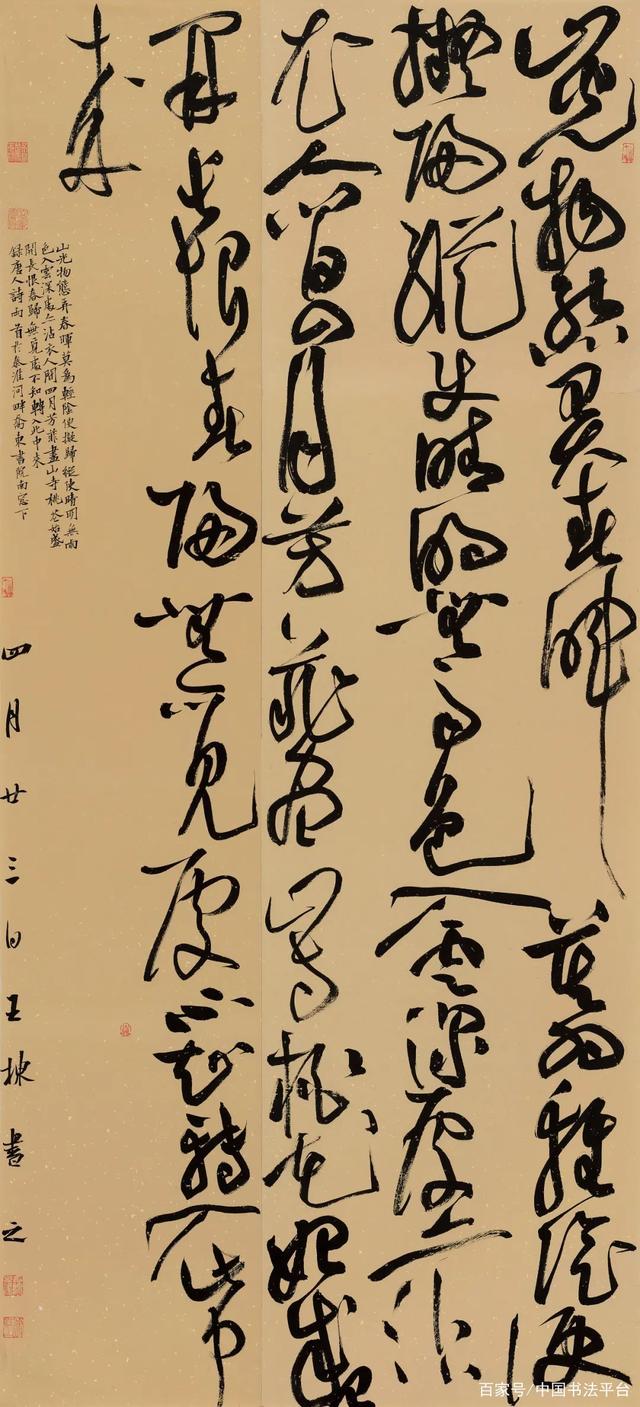 山光物態弄春暉莫為輕陰便
擬歸縱使晴明無雨色入雲深處亦沾
衣人間四月芳菲盡山寺桃花始盛
開長恨春歸無覓處不知轉入此中
來
山光物態弄春暉莫為輕陰便擬歸縱使晴明無雨
色入雲深處亦沾衣人間四月芳菲盡山寺桃花始盛
開長恨春歸無覓處不知轉入此中來
錄唐人詩兩首於秦淮河畔喬東書院南窗下
四月廿三日王棟書之
百家号/中国书法平台